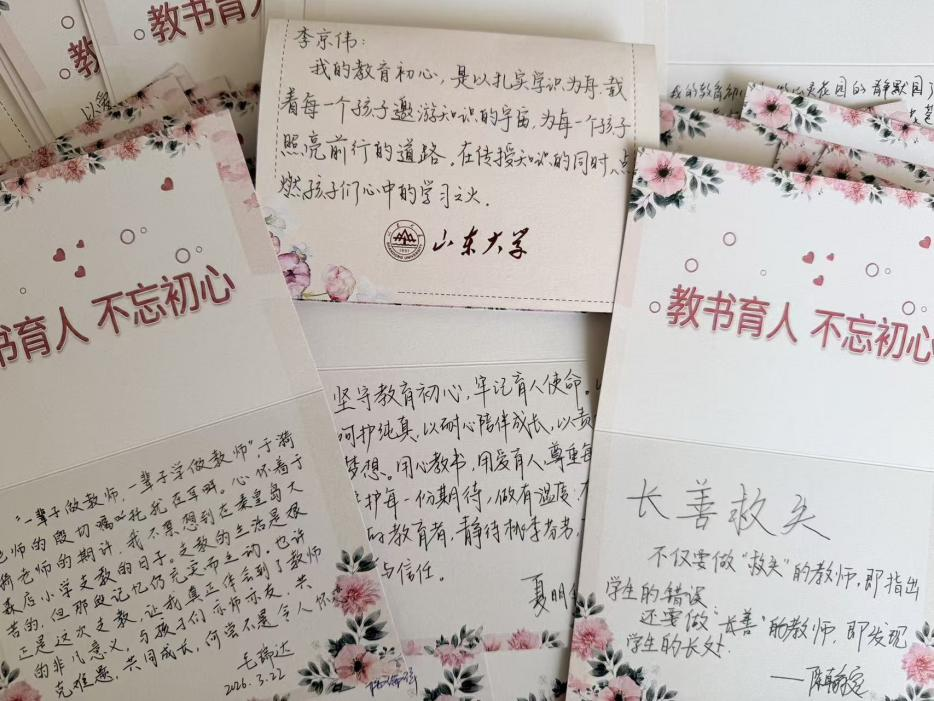 教
教书育人
李京伟：
我的教育初心，是以扎实学识为舟，载
着每一个孩子遨游知识的宇宙，为每一个孩子
照亮前行的道路，在传授知识的同时，点
燃孩子们心中的学习之火．
山东大学
书育人 不忘初心
"一辈子做教师，一辈子学做教师"，于漪
老师的殷切嘱托我在耳畔。心怀着于
漪老师的期许，我不禁想到在秦皇岛大
森店小学支教的日子。支教的生活是极
苦的，但那些记忆仍充实而生动。也许
正是这次支教，让我真正体会到了教师
的非凡意义，与孩子们亦师亦友，共
克难题，共同成长，何尝不是令人怀
毛瑞达
2026.3.22
坚守教育初心，牢记育人使命。
呵护纯真，以耐心陪伴成长，以责
梦想。用心教书，用爱育人，尊重每
护每一份期待，做有温度
的教育者，静待桃李芬芳
与信任。
夏明
教书育人 不忘初心
长善救失
不仅要做"救失"的教师，即指出
学生的错误
还要做"长善"的教师，即发现
学生的长处